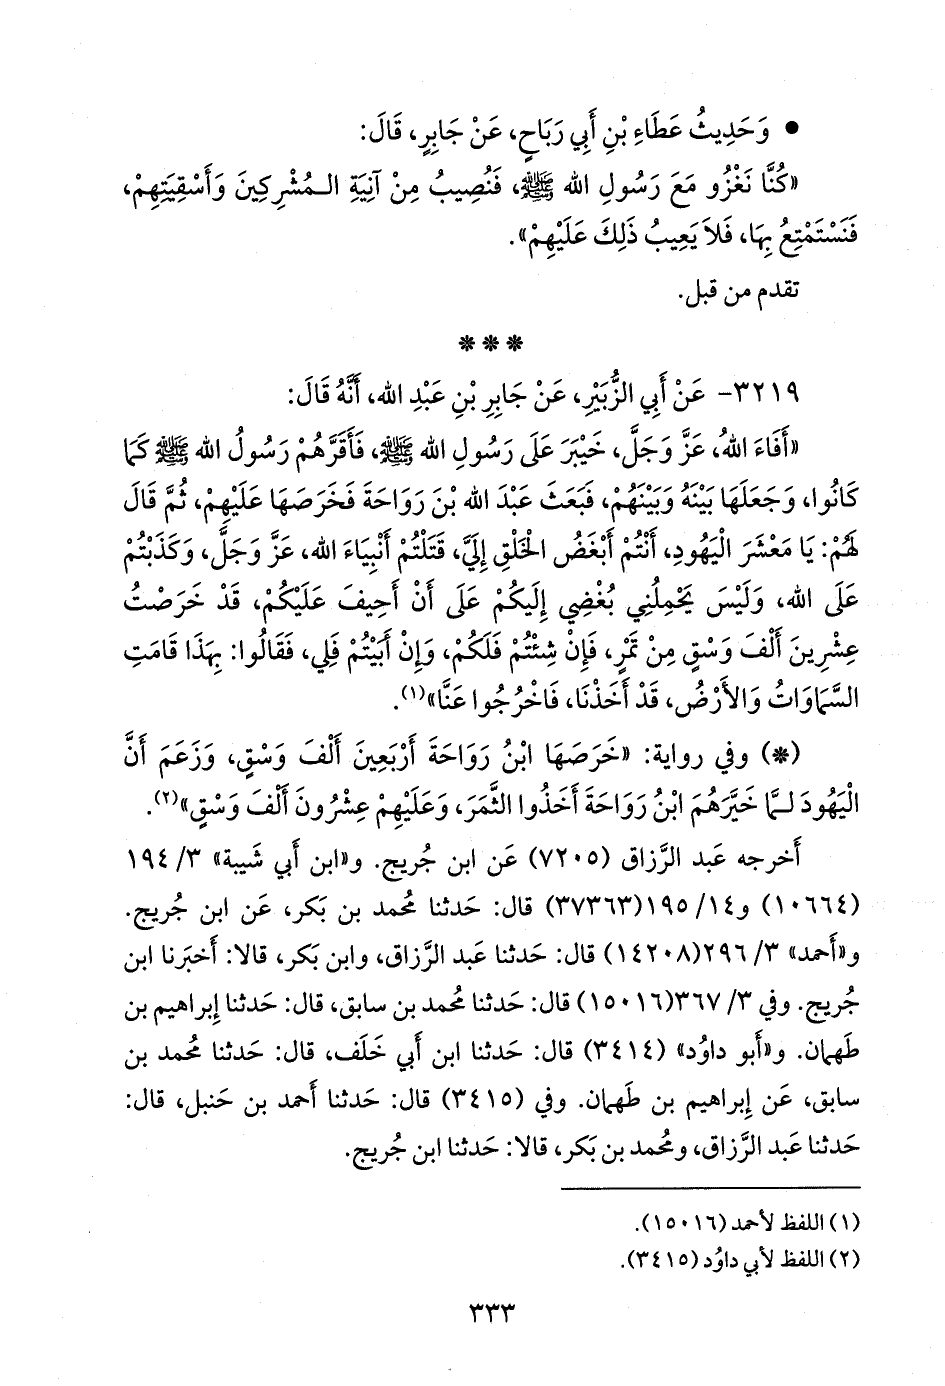 • وَحَدِيثُ عَطَاءِ بْنِ أَبِي رَبَاحٍ، عَنْ جَابِرٍ، قَالَ:
«كُنَّا نَغْزُو مَعَ رَسُولِ الله ﷺ، فَنُصِيبُ مِنْ آنِيَةِ الـمُشْرِكِينَ وَأَسْقِيَتِهِمْ،
فَنَسْتَمْتِعُ بِهَا، فَلاَ يَعِيبُ ذَلِكَ عَلَيْهِمْ».
تقدم من قبل.
* * *
٣٢١٩- عَنْ أَبِي الزُّبَيْرِ، عَنْ جَابِرِ بْنِ عَبْدِ الله، أَنَّهُ قَالَ:
«أَفَاءَ اللهُ، عَزَّ وَجَلَّ، خَيْبَرَ عَلَى رَسُولِ الله ﷺ، فَأَقَرَّهُمْ رَسُولُ الله ﷺ كَمَا
كَانُوا، وَجَعَلَهَا بَيْنَهُ وَبَيْنَهُمْ، فَبَعَثَ عَبْدَ الله بْنَ رَوَاحَةَ فَخَرَصَهَا عَلَيْهِمْ، ثُمَّ قَالَ
لَهُمْ: يَا مَعْشَرَ الْيَهُودِ، أَنْتُمْ أَبْغَضُ الْخَلْقِ إِلَيَّ، قَتَلْتُمْ أَنْبِيَاءَ الله، عَزَّ وَجَلَّ، وَكَذَبْتُمْ
عَلَى الله، وَلَيْسَ يَحْمِلُنِي بُغْضِي إِلَيكُمْ عَلَى أَنْ أَحِيفَ عَلَيْكُمْ، قَدْ خَرَصْتُ
عِشْرِينَ أَلْفَ وَسْقٍ مِنْ تَمْرٍ، فَإِنْ شِئْتُمْ فَلَكُمْ، وَإِنْ أَبَيْتُمْ فَلِي، فَقَالُوا: بِهَذَا قَامَتِ
السَّمَاوَاتُ وَالأَرْضُ، قَدْ أَخَذْنَا، فَاخْرُجُوا عَنَّا»(١).
(*) وفي رواية: «خَرَصَهَا ابْنُ رَوَاحَةَ أَرْبَعِينَ أَلْفَ وَسْقٍ، وَزَعَمَ أَنَّ
الْيَهُودَ لـمَّا خَيَّرَهُمَ ابْنُ رَوَاحَةَ أَخَذُوا الثَّمَرَ، وَعَلَيْهِمْ عِشْرُونَ أَلْفَ وَسْقٍ»(٢).
أَخرجه عَبد الرَّزاق (٧٢٠٥) عَن ابن جُريج. و«ابن أَبي شَيبة» ٣/ ١٩٤
(١٠٦٦٤) و١٤/ ١٩٥(٣٧٣٦٣) قال: حَدثنا مُحمد بن بَكر، عَن ابن جُريج.
و«أَحمد» ٣/ ٢٩٦(١٤٢٠٨) قال: حَدثنا عَبد الرَّزاق، وابن بَكر، قالا: أَخبَرنا ابن
جُريج. وفي ٣/ ٣٦٧(١٥٠١٦) قال: حَدثنا مُحمد بن سابق، قال: حَدثنا إِبراهيم بن
طَهمان. و«أَبو داوُد» (٣٤١٤) قال: حَدثنا ابن أَبي خَلَف، قال: حَدثنا مُحمد بن
سابق، عَن إِبراهيم بن طَهمان. وفي (٣٤١٥) قال: حَدثنا أَحمد بن حَنبل، قال:
حَدثنا عَبد الرَّزاق، ومُحمد بن بَكر، قالا: حَدثنا ابن جُريج.
(١) اللفظ لأحمد (١٥٠١٦).
(٢) اللفظ لأَبي داوُد (٣٤١٥).
٣٣٣